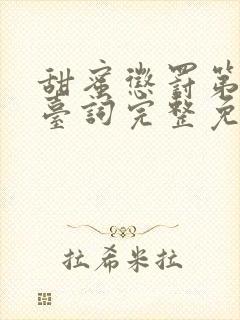 甜蜜懲罰第
臺詞完整免
拉希米拉